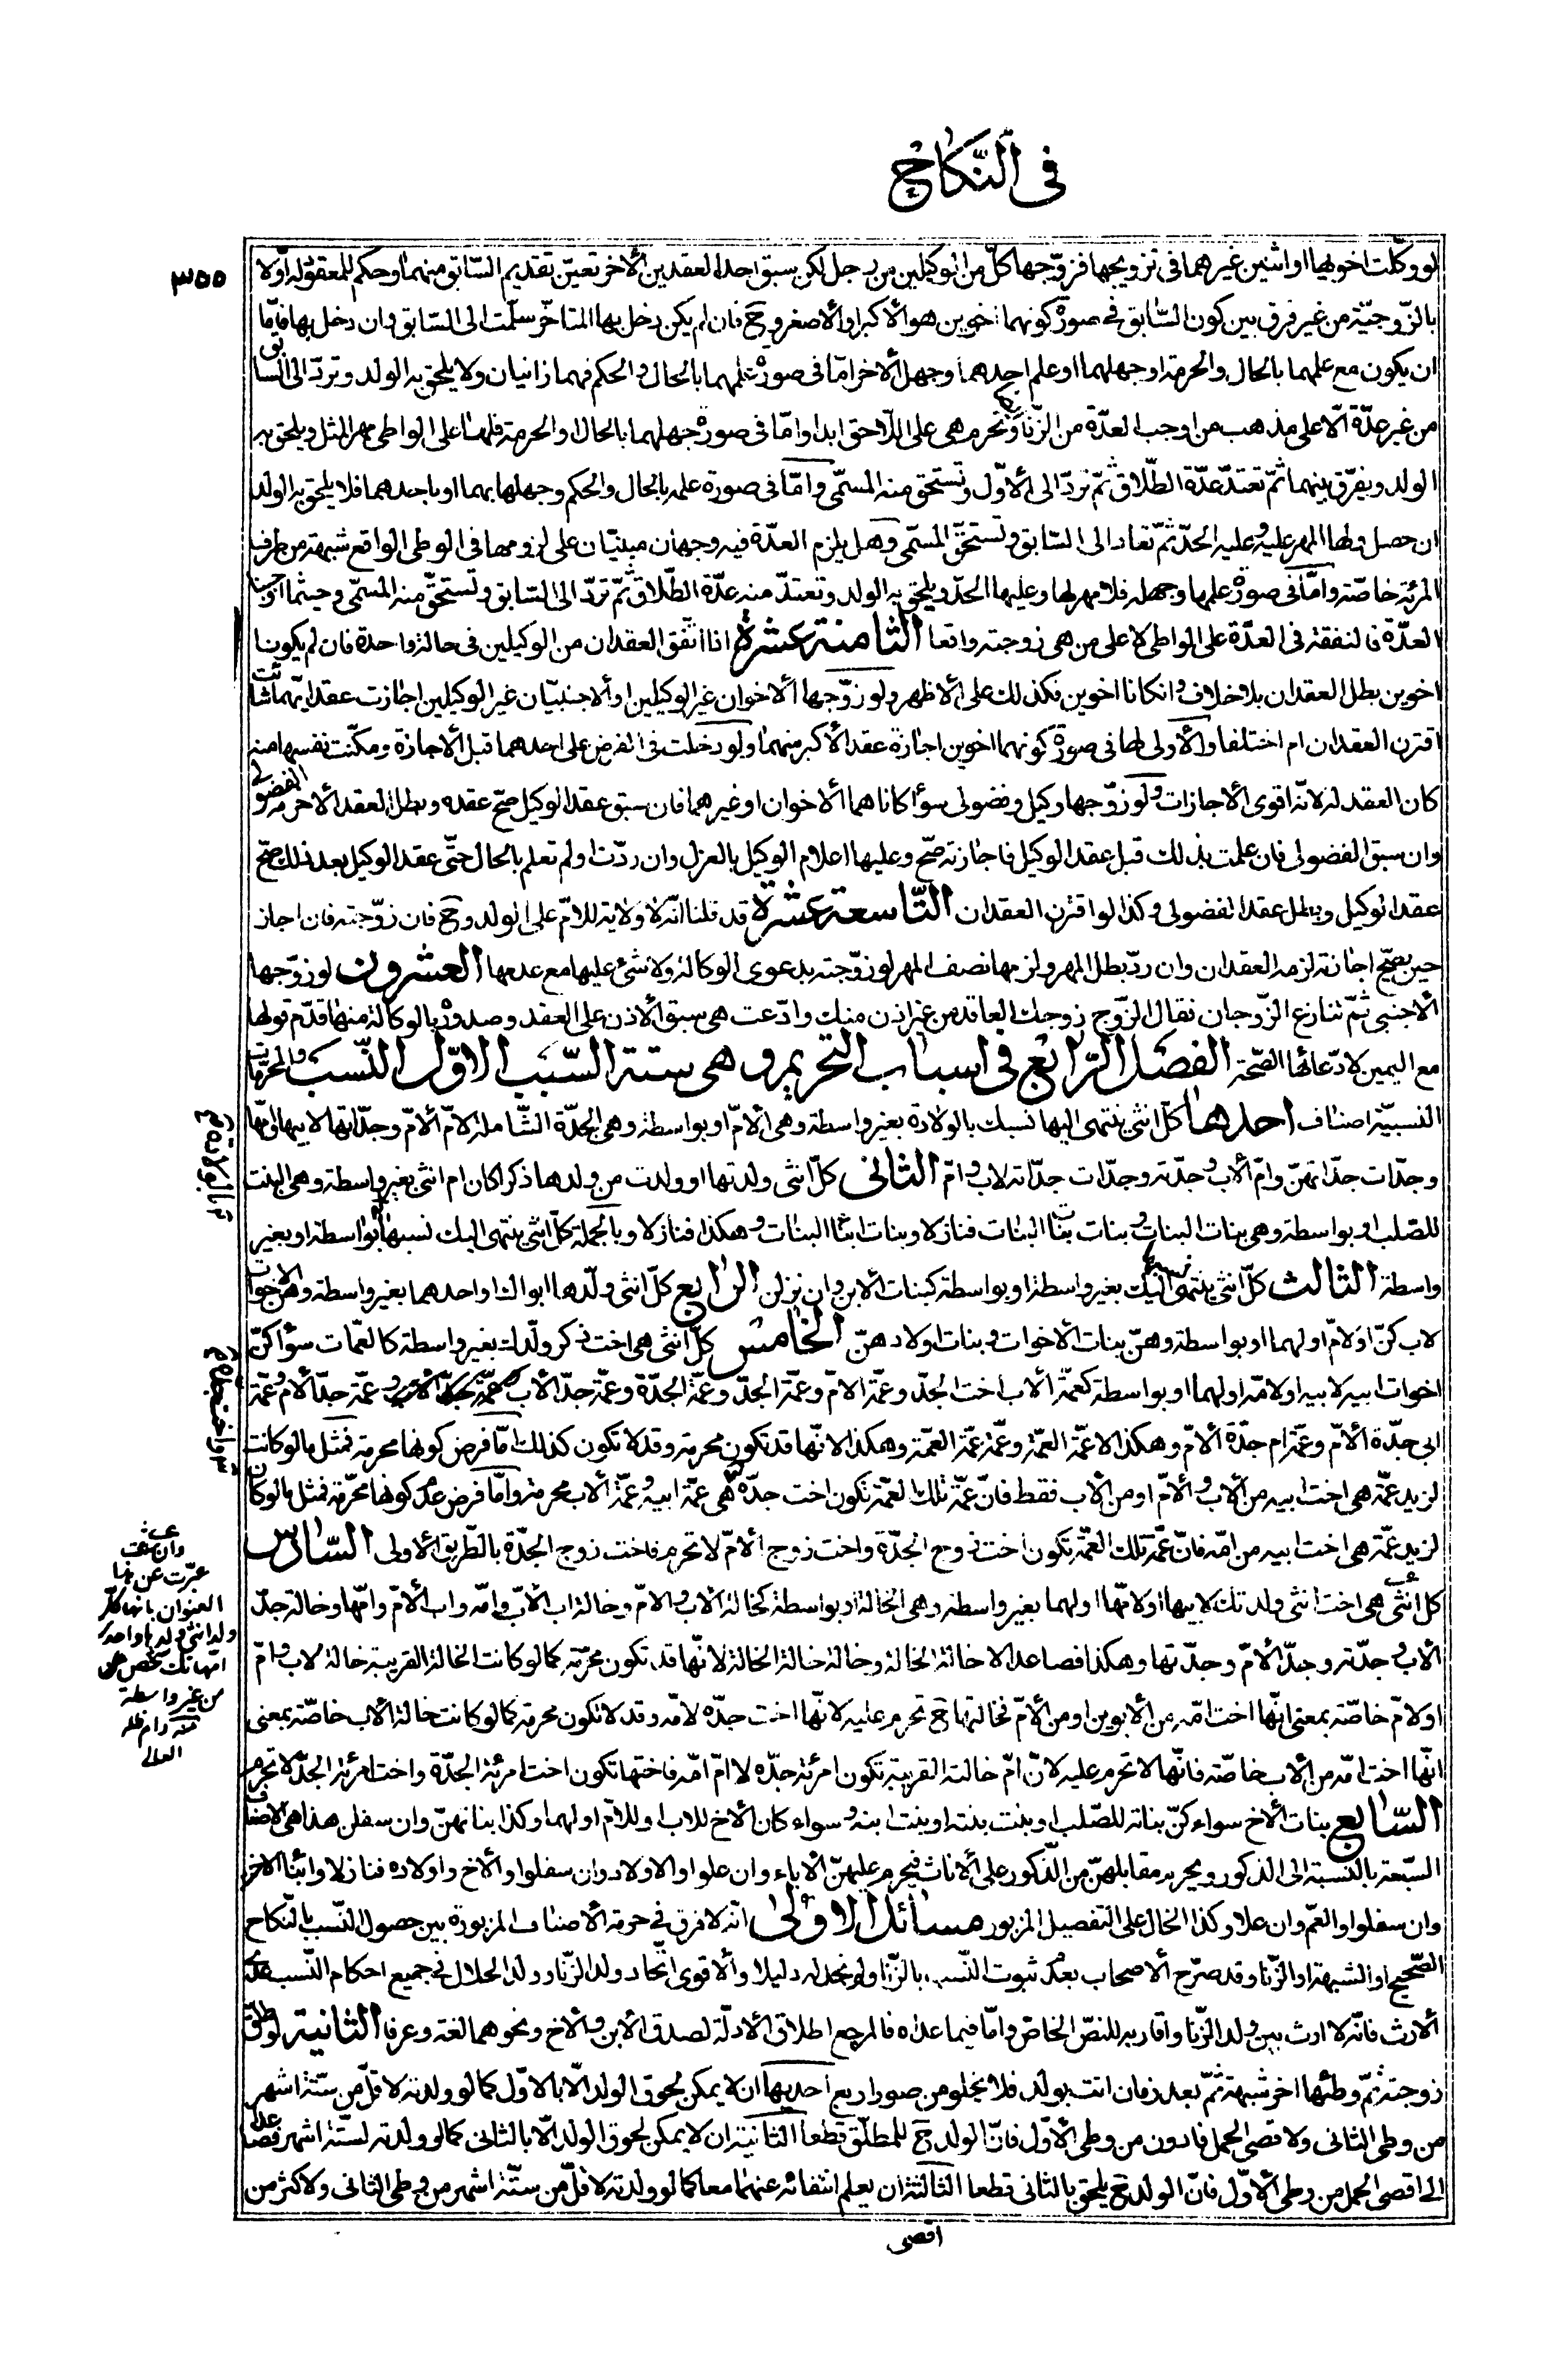 في النّكاح
٣٥٥
لو وكّلت اخويها او اثنين غيرهما في تزويجها فزوّجها كلّ من الوكيلين من رجل لكن سبق احد العقدين الأخر تعيّن تقديم السّابق منهما وحكم للمعقود له اولا
بالزّوجيّة من غير فرق بين كون السّابق في صورة كونهما اخوين هو الأكبر او الأصغر وح فان لم يكن دخل بها المتاخّر سلّمت الى السّابق وان دخل بها فامّا
ان يكون مع علمهما بالحال والحرمة او جهلهما او علم احدهما وجهل الأخر امّا في صورة علمهما بالحال والحكم فهما زانيان ولا يلحق به الولد وتردّ الى السابق
من غير عدّة الّا على مذهب من اوجب العدّة من الزّنا وتحرم هي على اللّاحق ابدا وامّا في صورة جهلهما بالحال او الحرمة فلها على الواطى مهر المثل ويلحق به
الولد ويفرّق بينهما ثمّ تعتدّ عدّة الطّلاق ثمّ تردّ الى الأوّل وتستحق منه المسمّى وامّا في صورة علمه بالحال والحكم وجهلها بهما او باحدهما فلا يلحق به الولد
ان حصل ولها المهر عليه وعليه الحدّ ثمّ تعاد الى السّابق وتستحقّ المسمّى وهل يلزم العدّة فيه وجهان مبنيّان على لزومها في الوطى الواقع شبهة من طرف
المرئة خاصّة وامّا في صورة علمها وجهله فلا مهر لها وعليها الحدّ ويلحق به الولد وتعتدّ منه عدّة الطّلاق ثمّ تردّ الى السّابق وتستحقّ منه المسمّى وحيثما اوجبنا
العدّة فالنفقة في العدّة على الواطى لا على من هي زوجته واقعا الثامنة عشرة اذا اتّفق العقدان من الوكيلين في حالة واحدة فان لم يكونا
اخوين بطل العقدان بلا خلاف وانكانا اخوين فكذلك على الأظهر ولو زوّجها الأخوان غير الوكيلين او الأجنبيّان غير الوكيلين اجازت عقد ايّهما شائت
اقترن العقدان ام اختلفا والأولى لها في صورة كونهما اخوين اجازة عقد الأكبر منهما ولو دخلت في الفرض على احدهما قبل الأجازة ومكّنت نفسها منه
كان العقد له لانّه اقوى الأجازات ولو زوّجها وكيل وفضولى سواء كانا هما الأخوان او غيرهما فان سبق عقد الوكيل صحّ عقده وبطل العقد الأخر من الفضولى
وان سبق الفضولى فان علمت بذلك قبل عقد الوكيل فاجازته صحّ وعليها اعلام الوكيل بالعزل وان ردّت او لم تعلم بالحال حتّى عقد الوكيل بعد ذلك صحّ
عقد الوكيل وبطل عقد الفضولى وكذا لو اقترن العقدان التّاسعة عشرة قد قلنا انّه لا ولاية للامّ على الولد وح فان زوّجته فان اجاز
حين يصحّ اجازته لزمه العقدان وان ردّ بطل المهر ولزمها نصف المهر لو زوّجته بدعوى الوكالة ولا شئ عليها مع عدمها العشرون لو زوّجها
الأجنبى ثمّ تنازع الزّوجان فقال الزّوج زوجك العاقد من غير اذن منك وادّعت هي سبق الأذن على العقد وصدوره بالوكالة منها قدّم قولها
مع اليمين لادّعائها الصّحّة الفصل الرّابع في اسباب التحريم وهى ستة السّبب الاوّل النّسب والمحرّمات
النسبيّة اصناف احدها كلّ انثى ينتهى اليها نسبك بالولادة بغير واسطة وهى الأمّ او بواسطة وهى الجدّة الشّاملة لامّ الأمّ وجدّاتها لابيها وامّها
وجدّات جدّاتهنّ وامّ الأب وجدّته وجدّات جدّاته لاب وامّ الثانى كلّ انثى ولدتها او ولدت من ولدها ذكرا كان ام انثى بغير واسطة وهى البنت
للصّلب او بواسطة وهى بنات البنات وبنات بنات البنات فنازلا وبنات ابناء البنات وهكذا فنازلا وبالجملة كلّ انثى ينتهى اليك نسبها بواسطة او بغير
واسطة الثالث كلّ انثى ينتهى اليك نسبها بغير واسطة او بواسطة كبنات الأبن وان نزلن الرّابع كلّ انثى ولّدها ابواك او احدهما بغير واسطة وهنّ الاخوات
لاب كنّ او لامّ او لهما او بواسطة وهنّ بنات الأخوات وبنات اولادهنّ الخامس كلّ انثى هي اخت ذكر ولّدك بغير واسطة كالعمّات سواء كنّ
اخوات ابيه لابيه او لامّه او لهما او بواسطة كعمّة الأب اخت الجدّ وعمّة الامّ وعمّة الجدّ وعمّة الجدّة وعمّة جدّ الأب وعمّة جدّ الأمّ وعمّة
ابى جدّة الأمّ وعمّة ام جدّة الأمّ وهكذا لا عمّة العمّة وعمّة عمّة العمّة وهكذا لانّها قد تكون محرمة وقد لا تكون كذلك امّا فرض كونها محرمة فمثل مالو كانت
لزيد عمّة هى اخت ابيه من الأب والأمّ او من الأب فقط فانّ عمّة تلك العمّة تكون اخت جدّه هى عمّة ابيه وعمّة الأب محرمة وامّا فرض عدم كونها محرّمة فمثل مالو كان
لزيد عمّة هى اخت ابيه من امّه فانّ عمّة تلك العمّة تكون اخت زوج الجدّة واخت زوج الأمّ لا تحرم فاخت زوج الجدّة بالطّريق الأولى السّادس
كل انثى هى اخت انثى ولدتك لابيها او لامّها او لهما بغير واسطة وهى الخالة او بواسطة كخالة الأب والامّ وخالة اب الأب وامّه واب الأمّ وامّها وخالة جدّ
الأب وجدّته وجدّ الأمّ وجدّتها وهكذا فصاعدا لا خالة الخالة وخالة خالة الخالة لانّها قد تكون محرّمة كمالو كانت الخالة القريبة خالة لاب وامّ
او لامّ خاصّة بمعنى انّها اخت امّه من الأبوين او من الأمّ فخالتها ح تحرم عليه لانّها اخت جدّه لامّه وقد لا تكون محرمة كمالو كانت خالة الأب خاصّة بمعنى
انّها اخت امّه من الأب خاصّه فانّها لا تحرم عليه لانّ امّ خالته القريبة تكون امرئة جدّه لا امّ امّه فاختها تكون اخت امرئة الجدّة واخت امرئة الجدّ لا تحرم
السّابع بنات الأخ سواء كنّ بناته للصّلب او بنت بنته او بنت ابنه وسواء كان الأخ للاب او للأمّ او لهما وكذا بناتهنّ وان سفلن هذا هى الاصناف
السّبعة بالنّسبة الى الذكور ويحرم مقابلهنّ من الذّكور على الأناث فيحرم عليهنّ الأباء وان علوا والاولاد وان سفلوا والأخ واولاده فنازلا وابناء الاخر
وان سفلوا والعمّ وان علا وكذا الخال على التفصيل المزبور مسائل الاولى انّه لا فرق في حرمة الأصناف المزبورة بين حصول النّسب بالنّكاح
الصّحيح او الشبهة او الزّنا وقد صرّح الأصحاب بعدم ثبوت النّسب بالزّنا ولم نجد له دليلا والأقوى اتّحاد ولد الزّنا وولد الحلال في جميع احكام النّسب عدا
الأرث فانّه لا ارث بين ولد الزّنا واقاربه للنصّ الخاصّ وامّا فيما عداه فالمرجع اطلاق الأدلّة لصدق الأبن والأخ ونحوهما لغة وعرفا الثانية لو طلّق
زوجته ثمّ وطئها اخر شبهة ثمّ بعد زمان اتت بولد فلا يخلو من صور اربع احديها ان لا يمكن لحوق الولد الّا بالاوّل كمالو ولدته لاقلّ من ستّة اشهر
من وطى الثانى ولاقصى الحمل فادون من وطى الأوّل فانّ الولد ح للمطلّق قطعا الثانية ان لا يمكن لحوق الولد الّا بالثانى كمالو ولدته لستّة اشهر فصاعدا
الى اقصى الحمل من وطى الأوّل فانّ الولد ح يلحق بالثانى قطعا الثالثة ان يعلم انتفائه عنهما معا كمالو ولدته لاقلّ من ستّة اشهر من وطى الثانى ولاكثر من
اقصى
بالولادة
وان شئت
عبّرت عن هذا
العنوان بانها كلّ
ولد انثى
من غير واسطة
منه دام ظله
العالى